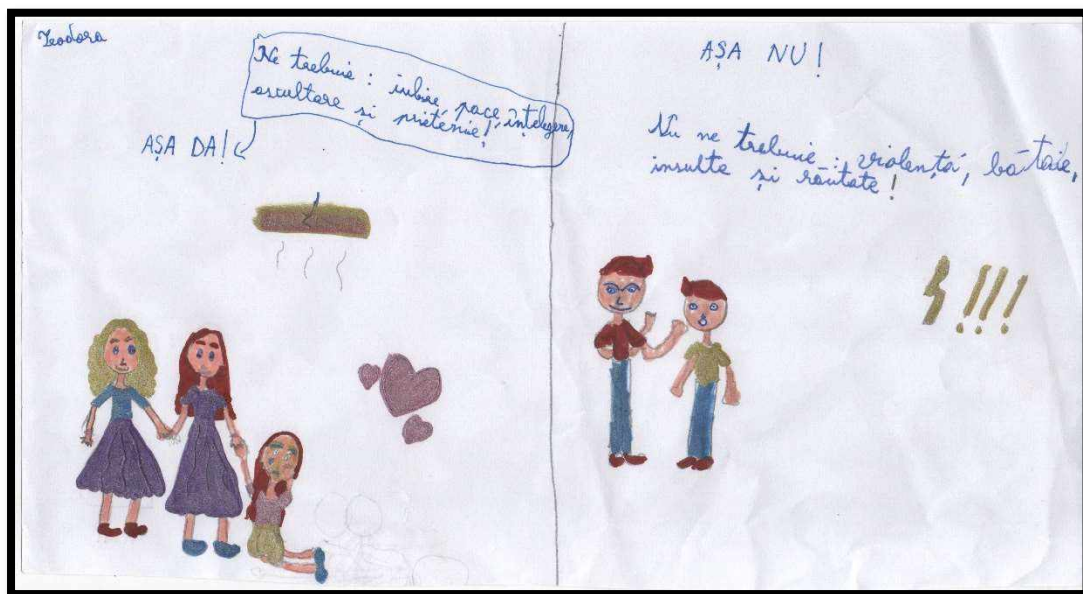 Teodora
Ne trebuie : iubire, pace, înțelegere,
ascultare și prietenie!
AȘA DA!
AȘA NU!
Nu ne trebuie : violență, bătaie,
insulte și răutate !
!!!